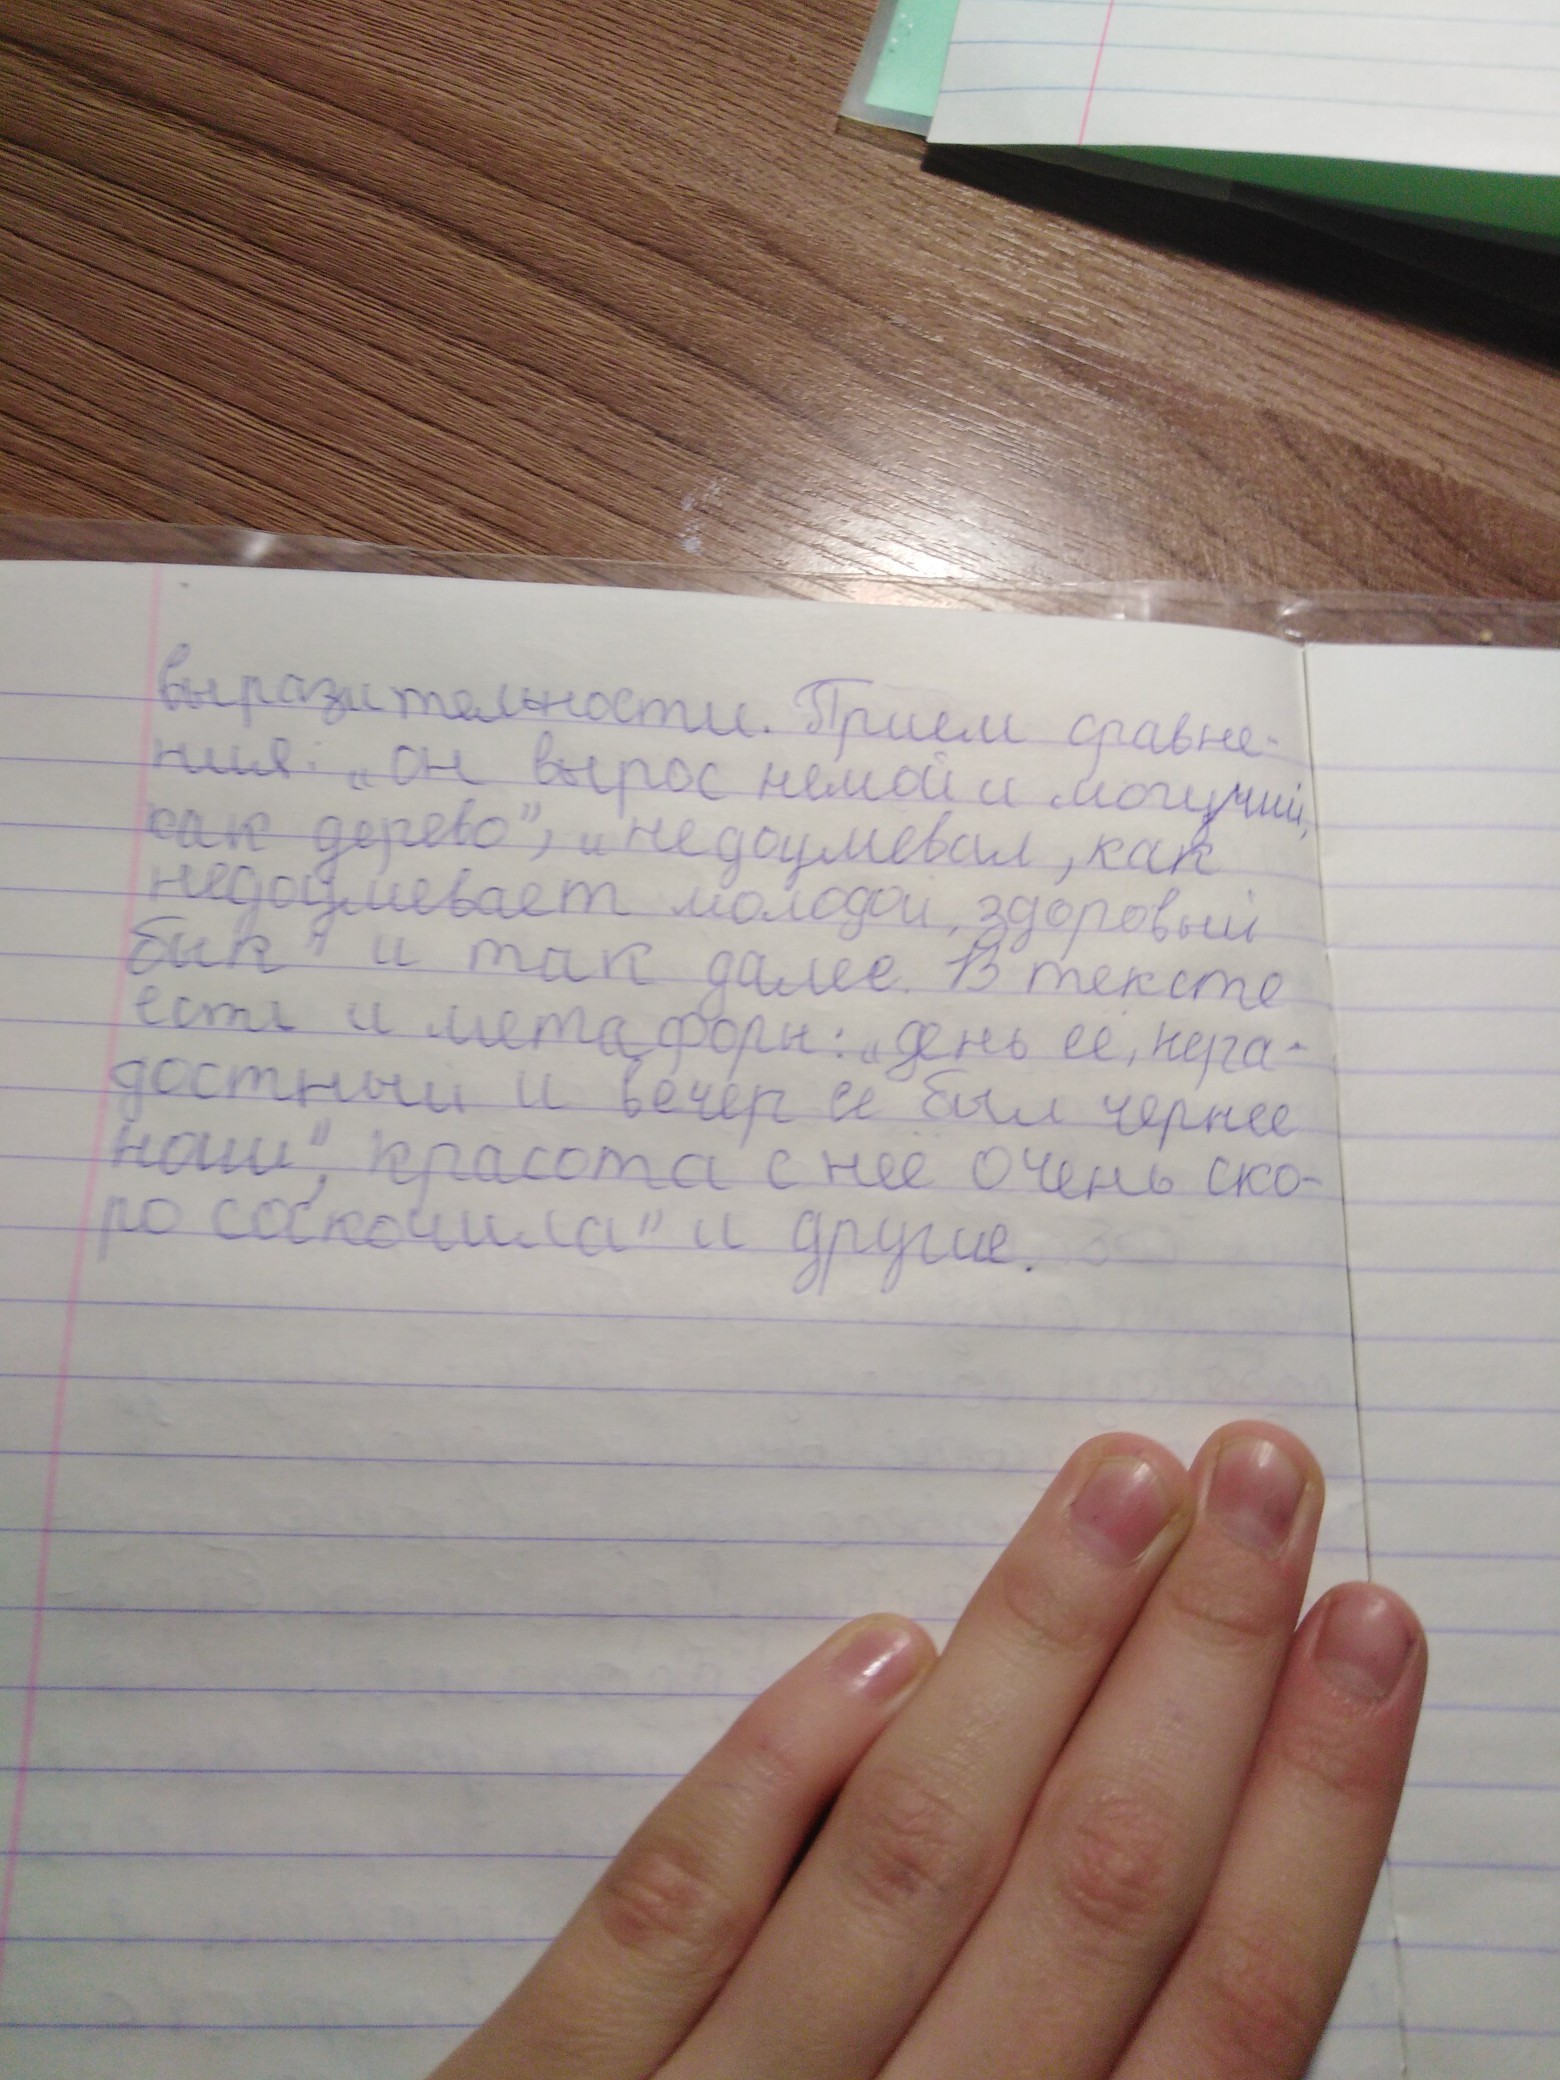 выразительности. Прием сравне-
ния: „он вырос немой и могучий,
как дерево", „недоумевал, как
недоумевает молодой, здоровый
бык" и так далее. В тексте
есть и метафоры: „день её, нера-
достный и вечер её был чернее
ночи", красота с неё очень ско-
ро соскочила" и другие.